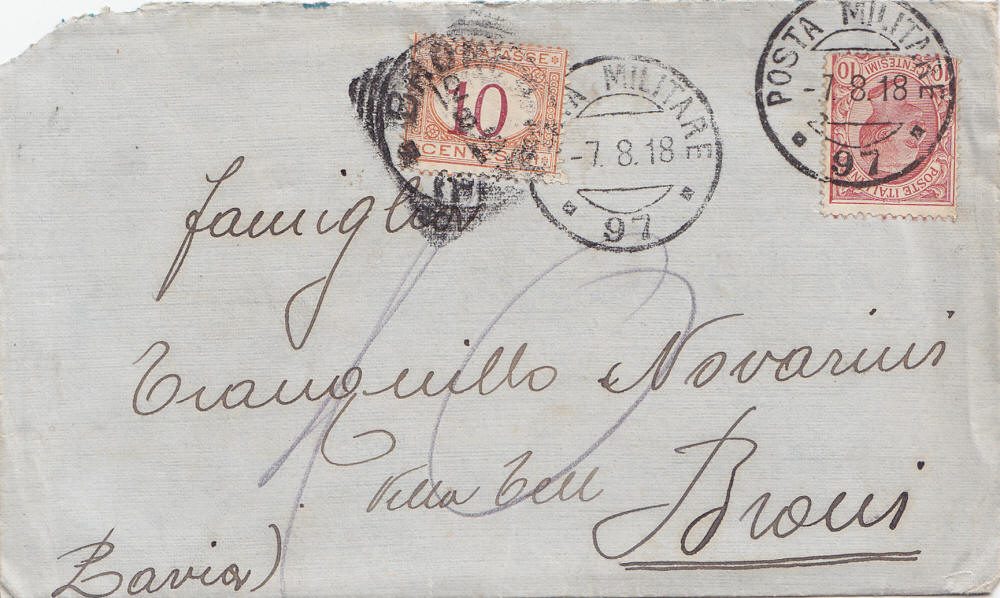 SEGNATASSE
10
CENTESIMI
POSTA MILITARE
-7. 8. 18
97
POSTA MILITARE
-7. 8. 18
97
10
CENTESIMI
POSTE ITALIANE
famiglia
Tranquillo Novarini
Villa Tell
Broni
Pavia)
10